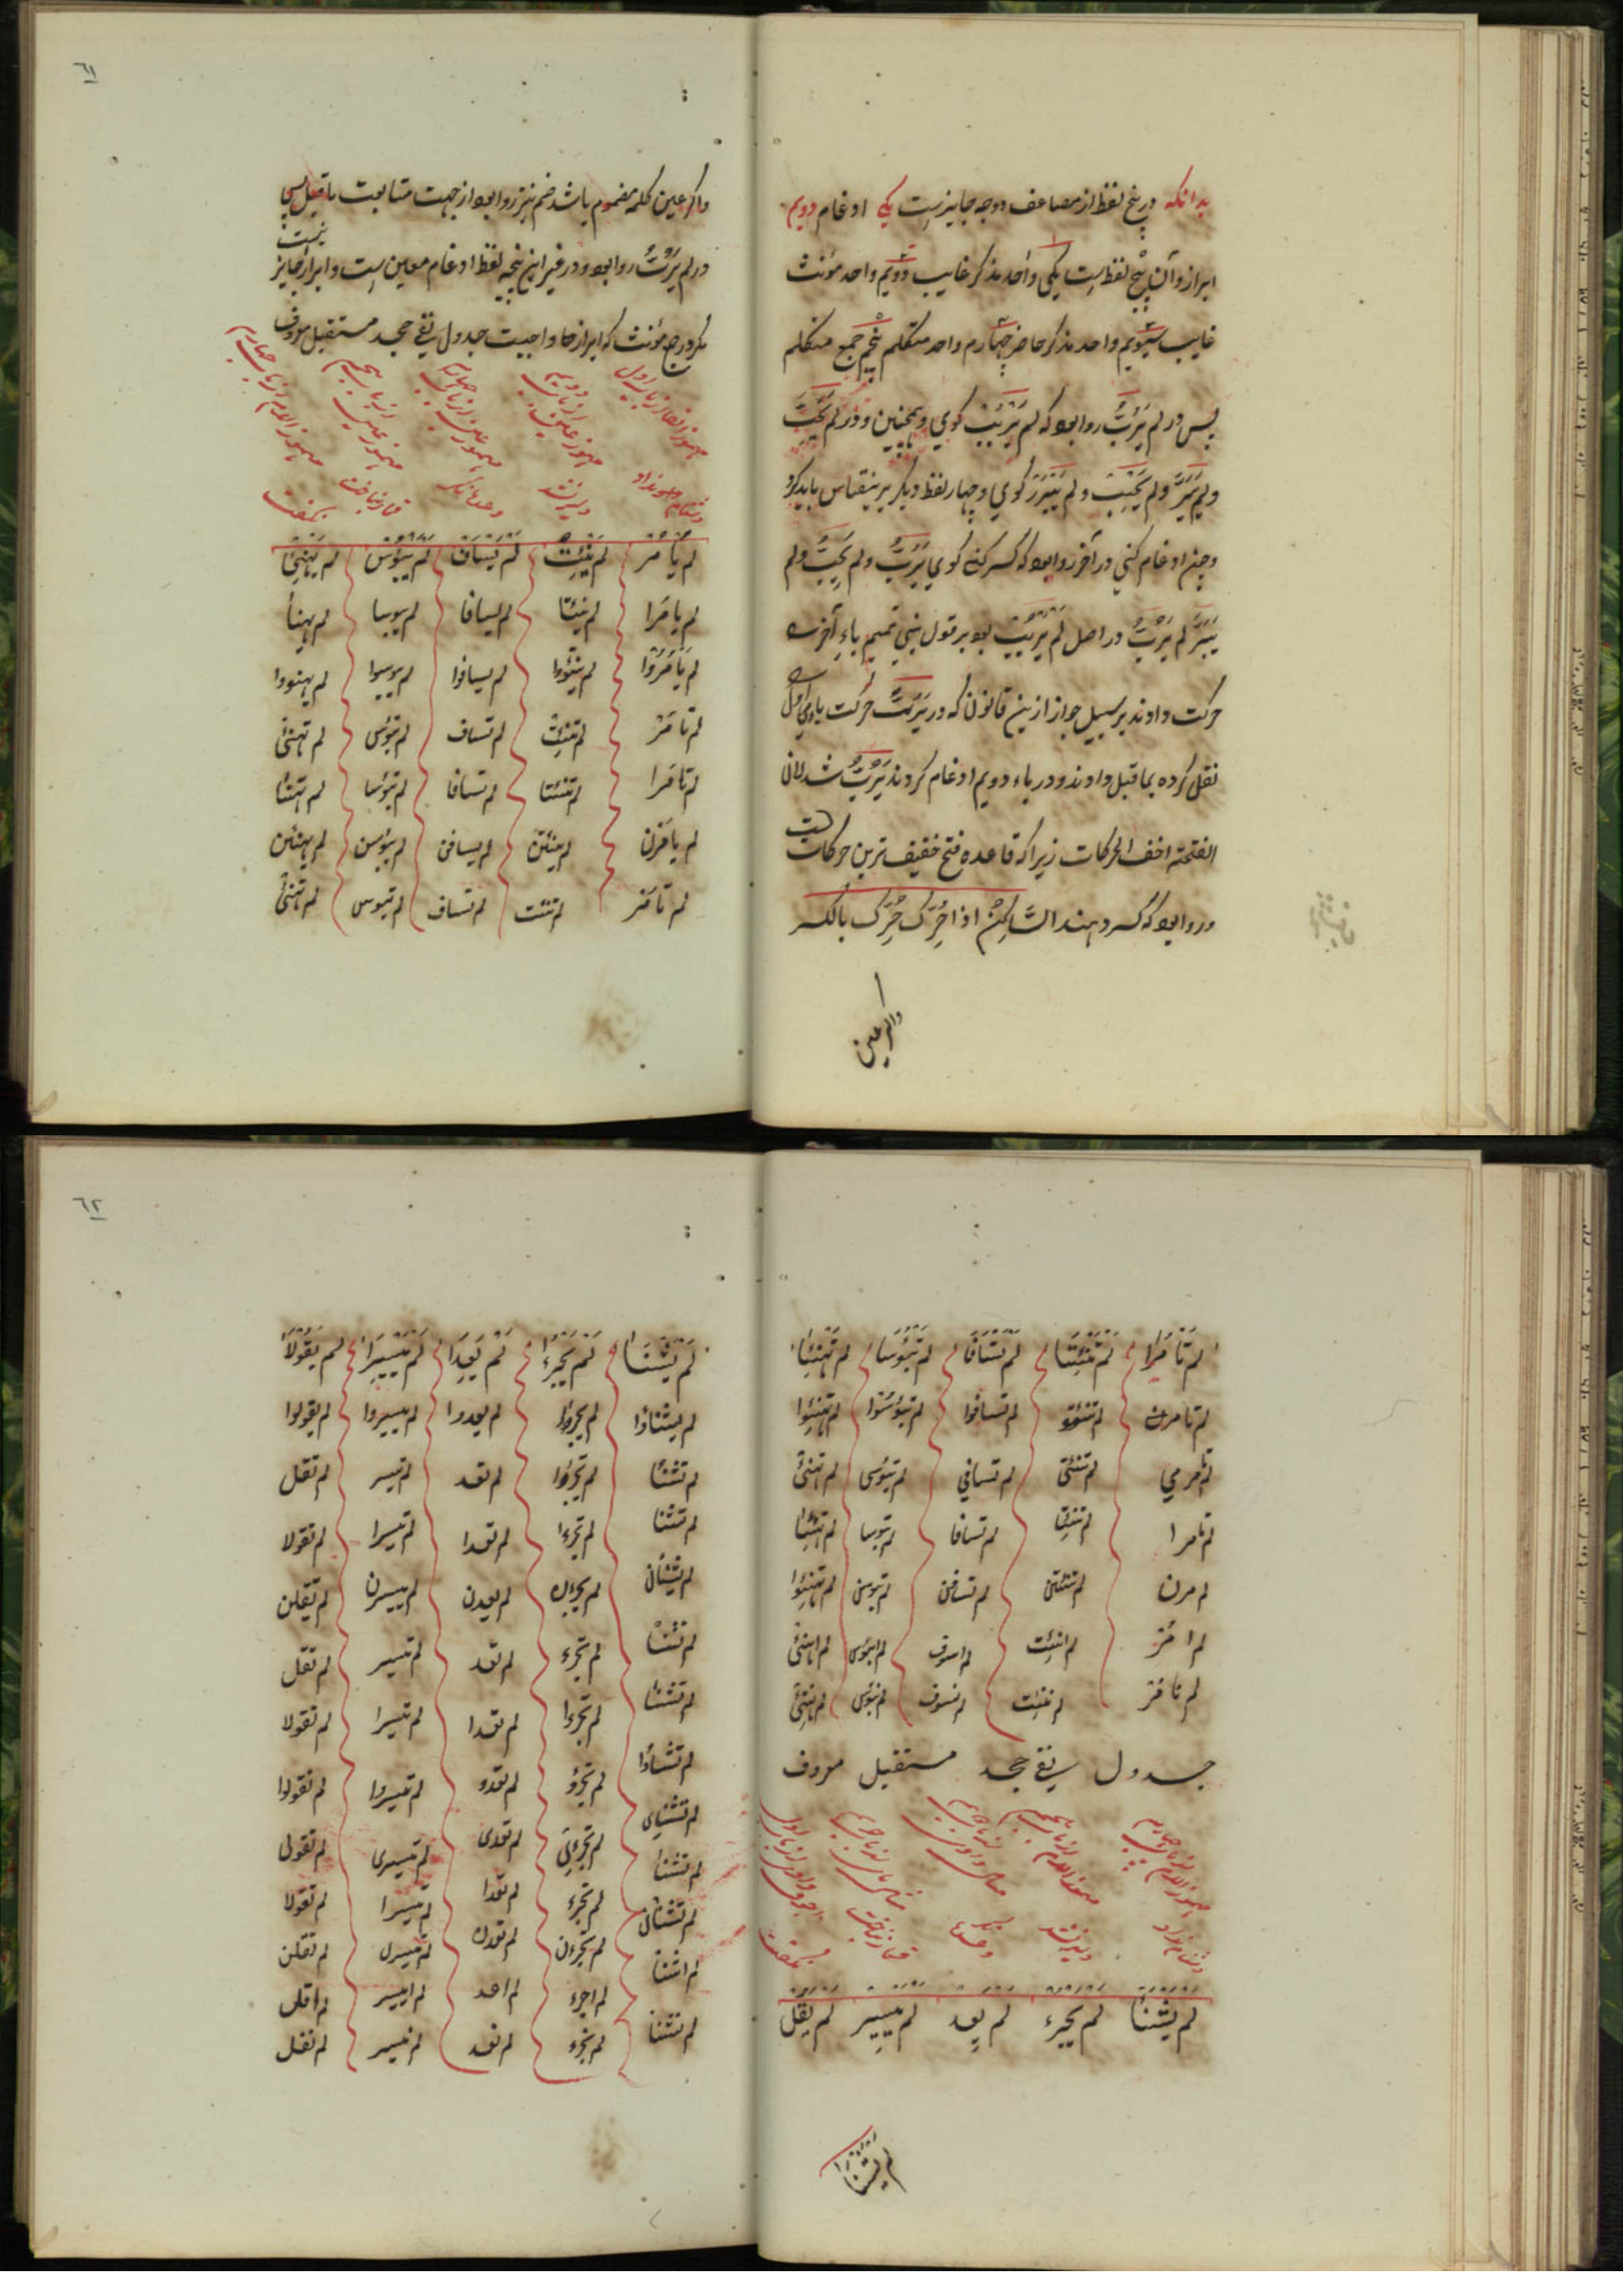 بدانکه در پنج لفظ از مضاعف دو وجه جایز است یکی ادغام دویم
ابراز و آن پنج لفظ است یکی واحد مذکر غایب دویم واحد مؤنث
غایب سیویم واحد مذکر حاضر چهارم واحد متکلم پنجم جمع متکلم
پس در لم یَرُبَّ روا بود که لم یَرْبُبْ کوی و همچنین و در لم یَحِبَّ
و لم یَبَرَّ و لم یَحْبِبْ و لم یَبْرَرْ کوی و چهار لفظ دیکر برینقیاس باید کرد
و چون ادغام کنی در آخر روا بود که کسر کنی کوی یَرُبِّ و لم یَحِبِّ و لم
یَبَرِّ لم یَرُبَّ در اصل لم یَرْبُبْ بود بر قول بنی تمیم باء آخر را
حرکت دادند بر سبیل جواز ازین قانون که در یَرُبُّ حرکت باء اول
نقل کرده بما قبل دادند و در باء دویم ادغام کردند یَرُبُّ شد لان
الفتحة اخف الحرکات زیرا که قاعده فتح خفیف ترین حرکات است
و روا بود که کسر دهند الساکن اذا حُرِّک حُرِّک بالکسر
واکر عین
٦١
واکر عین کلمه مضموم باشد ضم نیز روا بود از جهت متابعت ماقبل پس
در لم یَرُبُّ روا بود و در غیر این پنج لفظ ادغام معین است و ابراز جایز نیست
مکر در جمع مؤنث که ابراز آنجا واجبست جدول نفی جحد مستقبل معروف
مهموز الفا از باب اول
مهموز عین از باب دویم
مهموز عین از باب چهارم
مهموز عین از باب پنجم
مهموز اللام از باب چهارم
لم یأمر لم ینئت لم یسأف لم یبؤس لم یهنئ
لم یامرا لم ینئتا لم یسافا لم یبوسا لم یهنأ
لم یامروا لم ینئتوا لم یسافوا لم یبوسوا لم یهنووا
لم تامر لم تنئت لم تساف لم تبؤس لم تهنئ
لم تامرا لم تنئتا لم تسافا لم تبؤسا لم تهنئا
لم یامرن لم ینئتن لم یسافن لم یبؤسن لم یهنئن
لم تامر لم تنئت لم تساف لم تبوس لم تهنئ
لم تامرا لم تنئتا لم تسافا لم تبؤسا لم تهنئا
لم تامرن لم تنئتو لم تسافوا لم تبؤسوا لم تهنئوا
لم تامرمی لم تنئتی لم تسافی لم تبؤسی لم تهنئ
لم تامرا لم تنئتا لم تسافا لم تبوسا لم تهنئا
لم مرن لم تنئتن لم تسافن لم تبوسن لم تهنئوا
لم امر لم انئت لم اسوف لم ابؤس لم اهنئ
لم نامر لم ننئت لم نسوف لم نبؤس لم نهنئ
جدول نفی جحد مستقبل معروف
لم یشنأ لم یجرء لم یعد لم ییسر لم یقل
لم یشنا
٦٢
لم یشنا لم یجرءا لم یعدا لم ییسرا لم یقولا
لم یشناوا لم یجروا لم یعدوا لم ییسروا لم یقولوا
لم تشنا لم تجرؤا لم تعد لم تیسر لم تقل
لم تشنا لم تجرءا لم تعدا لم تیسرا لم تقولا
لم یشنان لم یجرءن لم یعدن لم ییسرن لم یقلن
لم تشنا لم تجرء لم تعد لم تیسر لم تقل
لم تشنا لم تجرءا لم تعدا لم تیسرا لم تقولا
لم تشناوا لم تجرؤ لم تعدو لم تیسروا لم تقولوا
لم تشنای لم تجرءی لم تعدی لم تیسری لم تقولی
لم تشنا لم تجرء لم تعدا لم تیسرا لم تقولا
لم تشنان لم تجرءن لم تعدن لم تیسرن لم تقلن
لم اشنا لم اجرء لم اعد لم ایسر لم اقل
لم نشنا لم نجرء لم نعد لم نیسر لم نقل